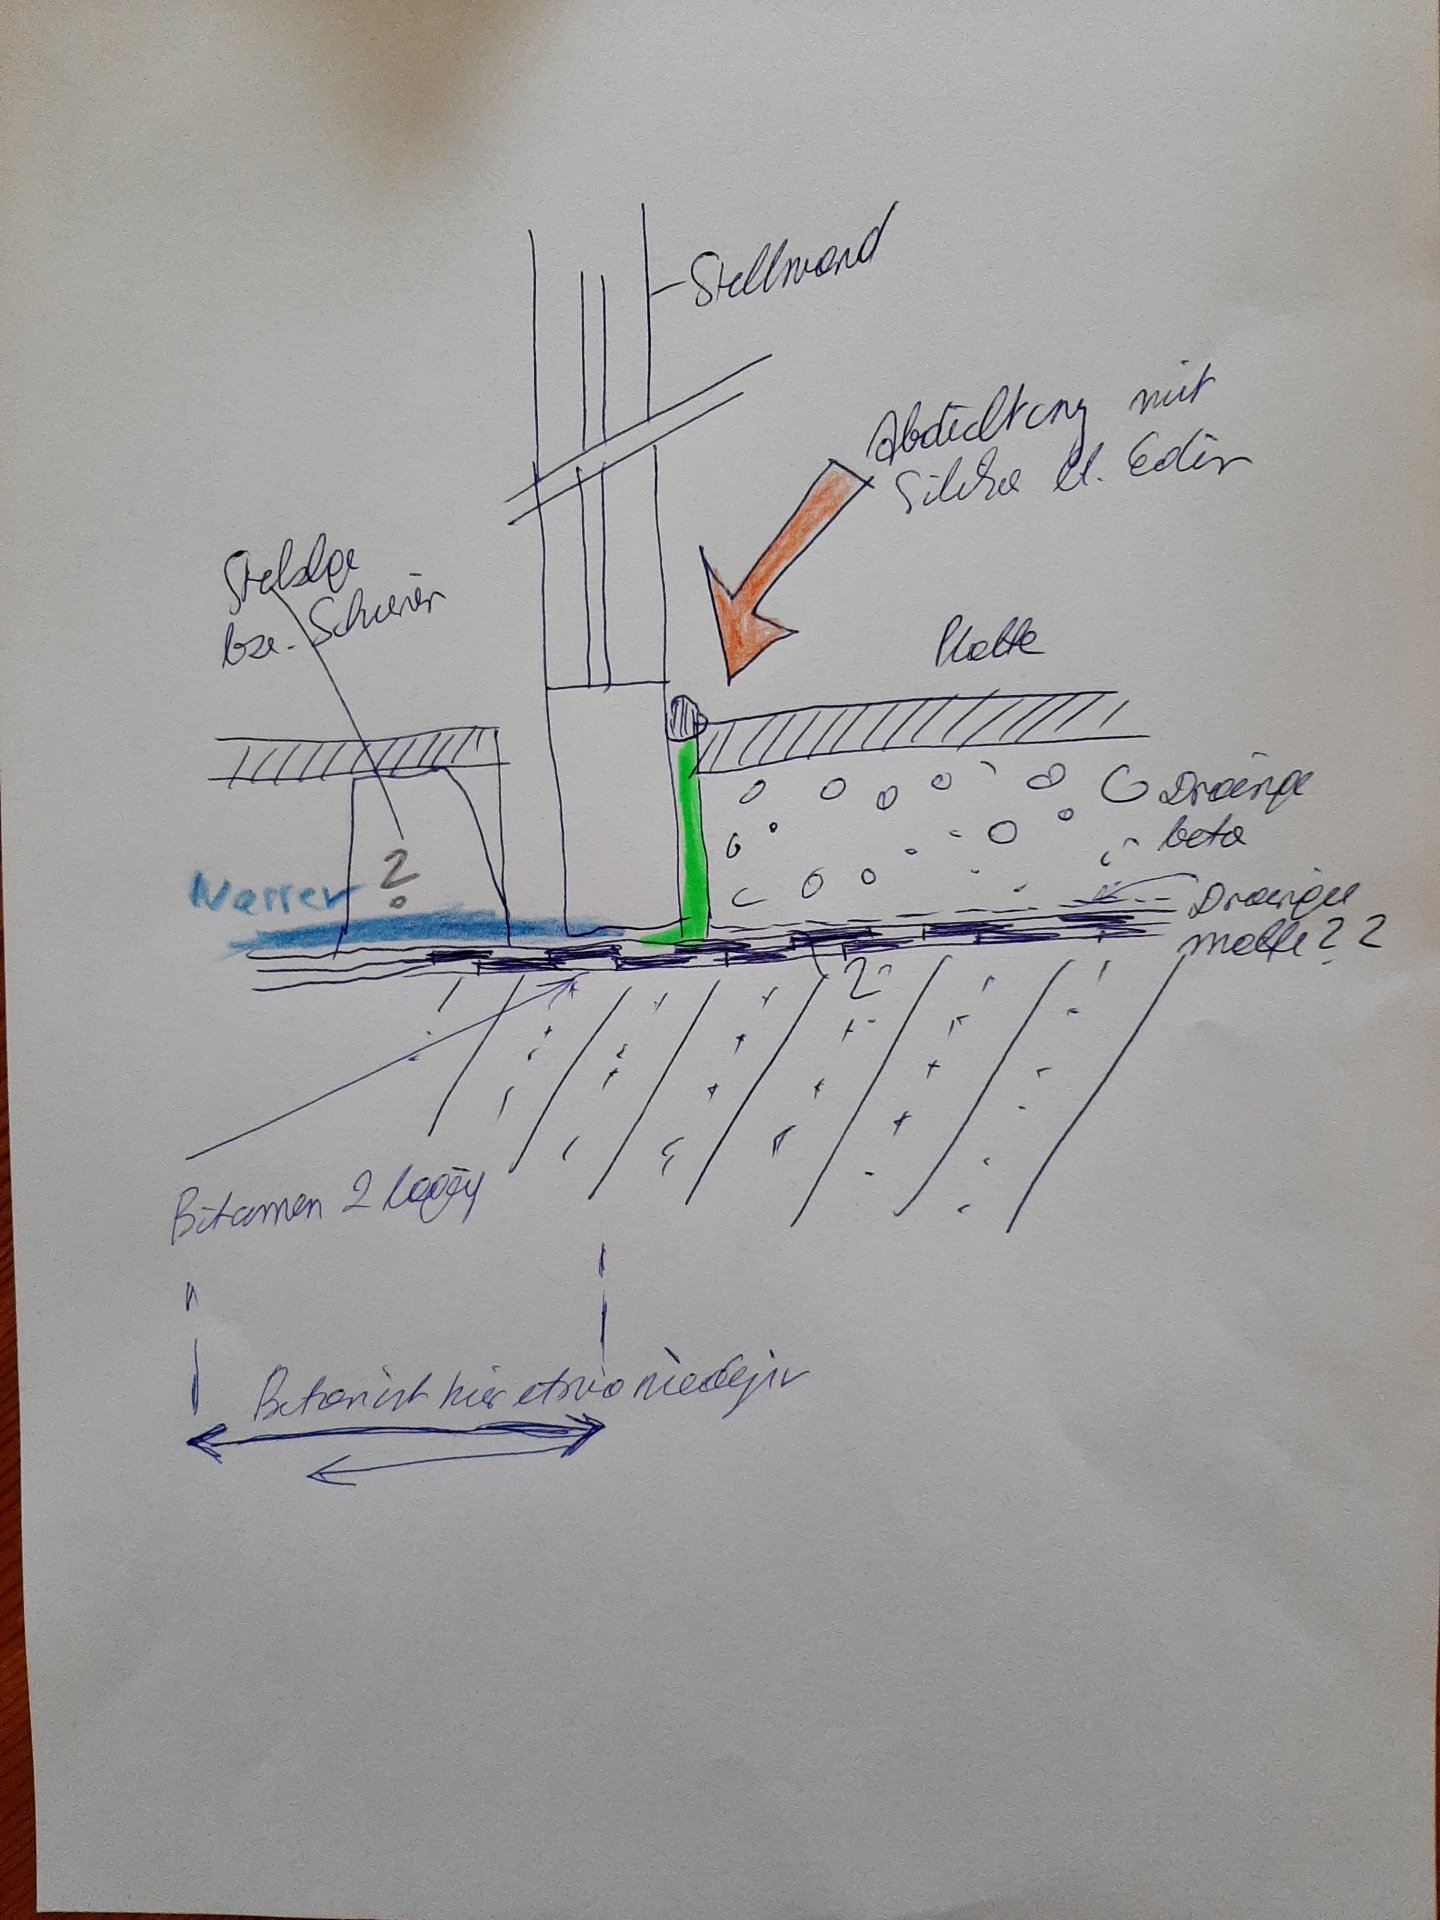 Stellwand
Abdichtung mit
Stelzlager
bzw. Schienen
Platte
Drainage
beto
Wasser ?
Drainage
matte ? ?
?
Bitumen 2 lagig
Beton ist hier etwas niedriger